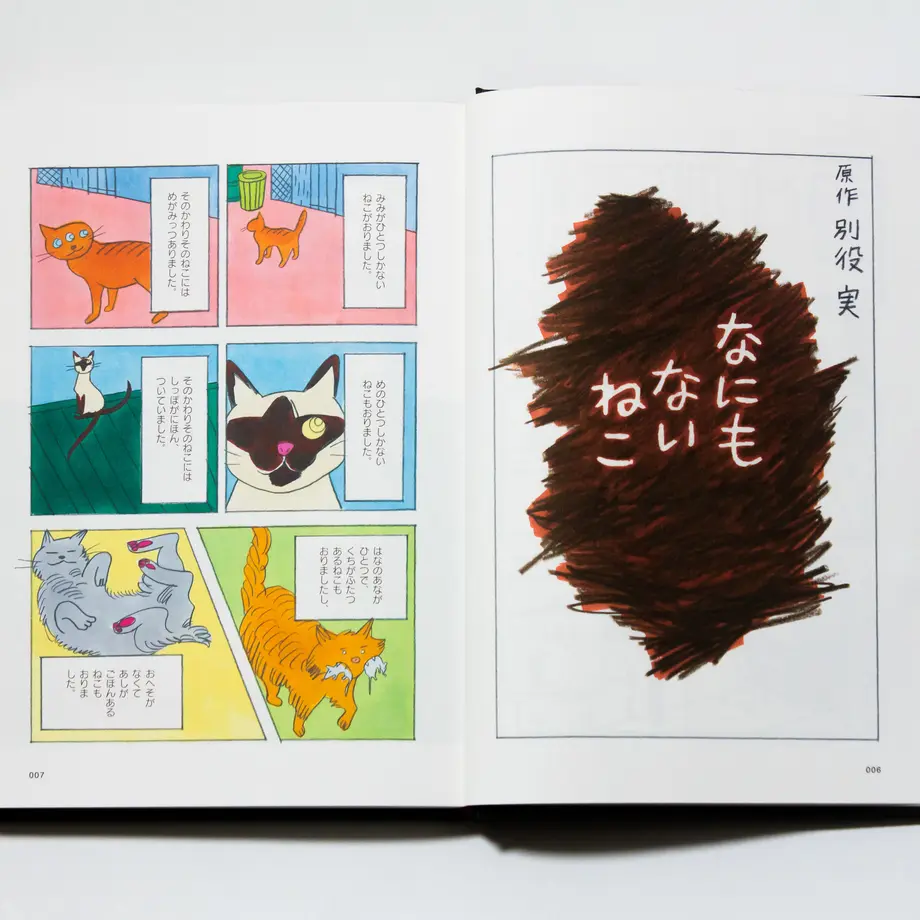 原作 別役 実
なにも
ない
ねこ
006
みみがひとつしかない
ねこがおりました。
そのかわりそのねこには
めがみっつありました。
めのひとつしかない
ねこもおりました。
そのかわりそのねこには
しっぽがにほん、
ついていました。
はなのあなが
ひとつで、
くちがふたつ
あるねこも
おりましたし、
おへそが
なくて
あしが
ごほんある
ねこも
おりま
した。
007